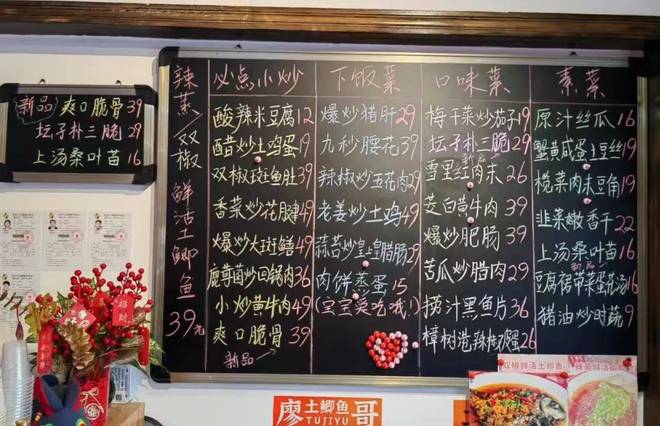 新品 爽口脆骨 39
坛子朴三脆 29
上汤桑叶苗 16
辣蒸/双椒鲜活土鲫鱼39元
必点小炒
酸辣米豆腐 12
醋炒土鸡蛋 19
双椒斑鱼肚 39
香菜炒花腱 49
爆炒大斑鳝 49
鹿茸菌炒回锅肉 36
小炒黄牛肉 49
爽口脆骨 39
新品
下饭菜
爆炒猪肝 29
九秒腰花 39
辣椒炒五花肉 29
老姜炒土鸡 49
蒜苔炒皇腊肠 29
肉饼蒸蛋 15
(宝宝爱吃哦!)
口味菜
梅干菜炒茄子 19
坛子朴三脆 29
新品
雪里红肉末 26
茭白黄牛肉 39
爆炒肥肠 39
苦瓜炒腊肉 29
捞汁黑鱼片 36
樟树港辣椒皮蛋 26
素菜
原汁丝瓜 16
蟹黄咸蛋土豆丝 19
榄菜肉末豆角 19
韭菜嫩香干 22
上汤桑叶苗 16
新品
豆腐带菜蛋花汤 16
猪油炒时蔬 9
双椒鲜活土鲫鱼
廖土鲫鱼哥
TUJIYU